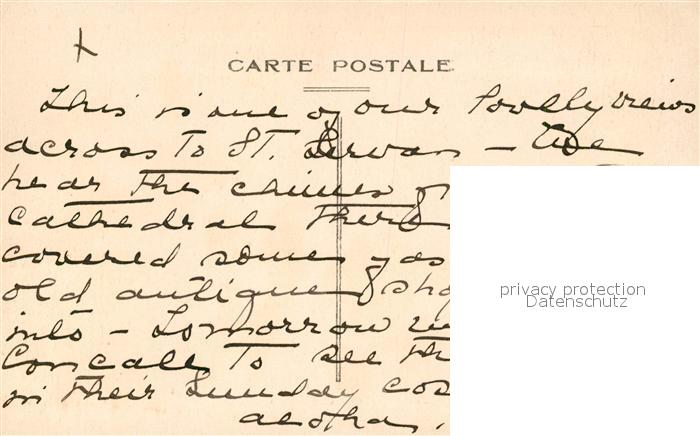 CARTE POSTALE
This is one of our lovely views
across to St. Servan — We
hear the chimes of
Cathedral there
covered some
old antique sho
into - Tomorrow
Concale to see th
in their Sunday cos
privacy protection
Datenschutz